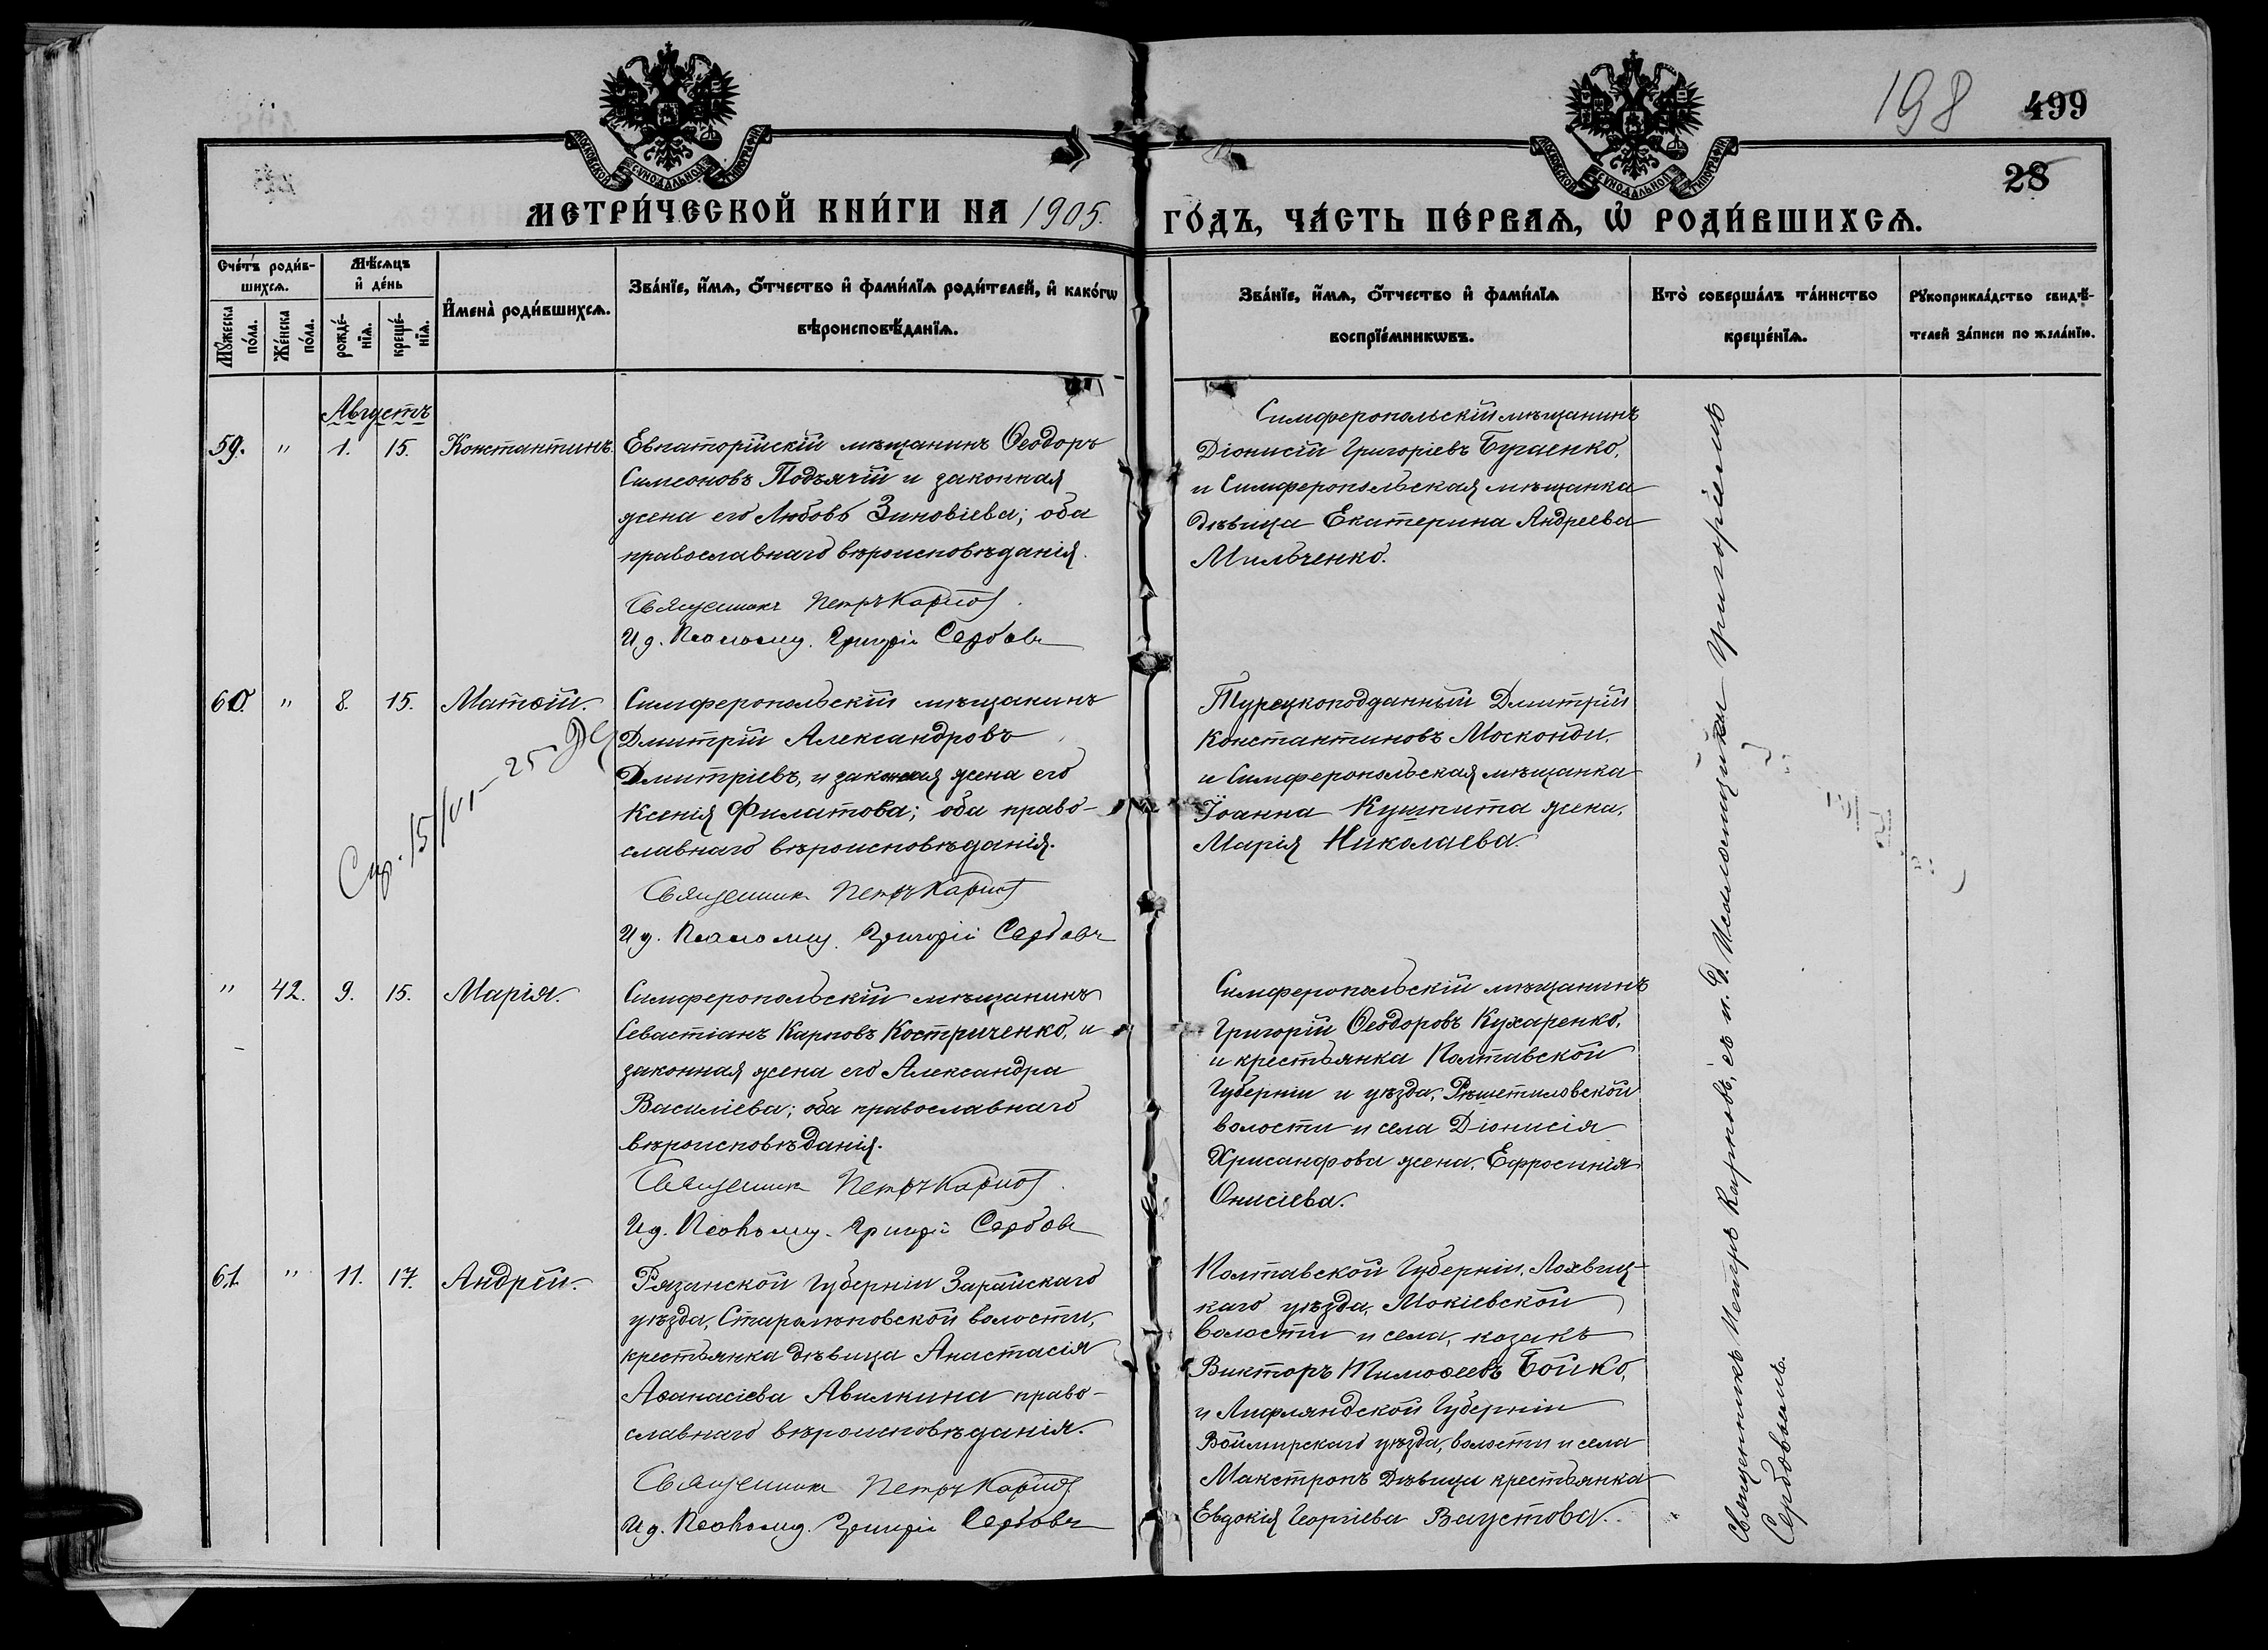 198 499
28
МОСКОВСКОЙ СѴНОДАЛЬНОЙ ТИПОГРАФІИ
МОСКОВСКОЙ СѴНОДАЛЬНОЙ ТИПОГРАФІИ
МЕТРИ́ЧЕСКОЙ КНИ́ГИ НА 1905. ГО́ДЪ, ЧА́СТЬ ПЕ́РВАѦ, Ѡ҆ РОДИ́ВШИХСѦ.
Сче́тъ роди́в-
шихсѧ.
Мꙋ́жеска по́ла.
Же́нска по́ла.
Мѣ́сѧцъ
и҆ де́нь
рожде́-
нїѧ.
креще́-
нїѧ.
И҆мена̀ роди́вшихсѧ.
Зва́нїе, и҆́мѧ, ѻ҆́тчество и҆ фами́лїѧ роди́телей, и҆ како́гѡ
вѣроисповѣ́данїѧ.
Зва́нїе, и҆́мѧ, ѻ҆́тчество и҆ фами́лїѧ
воспрїе́мникѡвъ.
Кто̀ соверша́лъ та́инство
креще́нїѧ.
Рꙋкоприкла́дство свидѣ́-
телей за́писи по жела́нїю.
Августъ
59. " 1. 15. Константинъ.
Евпаторійскій мѣщанинъ Ѳеодоръ
Симеоновъ Подъячій и законная
жена его Любовь Зиновіева; оба
православнаго вѣроисповѣданія.
Священникъ Петръ Карпов
И д. Псаломщ. Григорій Сербовъ
Симферопольскій мѣщанинъ
Діонисій Григоріевъ Бугаенко,
и Симферопольская мѣщанка
дѣвица Екатерина Андреева
Мильченко.
60. " 8. 15. Матѳій.
Спр. 15/VI-25
Симферопольскій мѣщанинъ
Дмитрій Александровъ
Дмитріевъ, и законная жена его
Ксенія Филатова; оба право-
славнаго вѣроисповѣданія.
Священник Петръ Карпов
И д. Псаломщ. Григорій Сербовъ
Турецкоподданный Дмитрій
Константиновъ Москонди,
и Симферопольская мѣщанка
Іоанна Кушпита жена,
Марія Николаева.
" 42. 9. 15. Марія.
Симферопольскій мѣщанинъ
Севастіанъ Карповъ Костриченко, и
законная жена его Александра
Василіева; оба православнаго
вѣроисповѣданія.
Священник Петръ Карпов
И д. Псаломщ. Григорій Сербовъ
Симферопольскій мѣщанинъ
Григорій Ѳеодоровъ Кухаренко,
и крестьянка Полтавской
Губерніи и уѣзда, Рѣшетиловской
волости и села Діонисія
Хрисанфова жена, Ефросинія
Онисіева.
61. " 11. 17. Андрей.
Рязанской Губерніи Зарайскаго
уѣзда, волости,
крестьянка дѣвица Анастасія
Аѳанасіева Авилкина право-
славнаго вѣроисповѣданія.
Священник Петръ Карпов
И д. Псаломщ. Григорій Сербовъ
Полтавской Губерніи, Лохвиц-
каго уѣзда, Мокіевской
волости и села, козакъ
Викторъ Тимоѳеевъ Бойко,
и Лифляндской Губерніи
уѣзда, волости и села
дѣвица крестьянка
Евдокія Георгіева Ваустова.
Священникъ Петръ Карповъ, съ и. д. Псаломщика Григоріемъ
Сербовымъ.